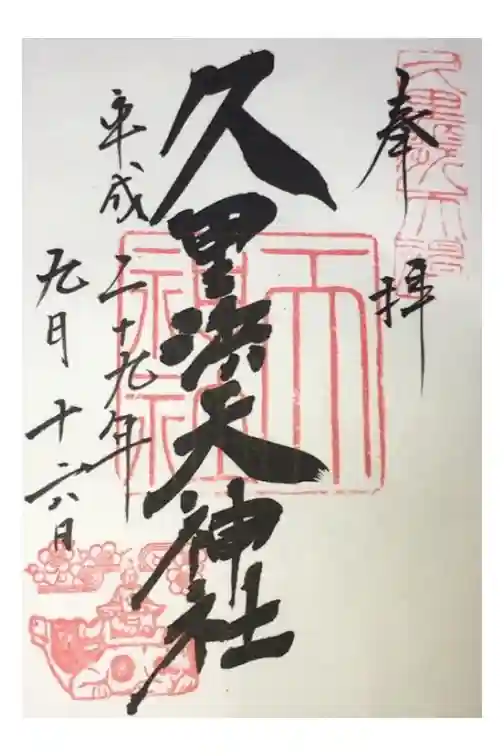 奉拝
久里浜天神社
平成二十九年
九月十六日